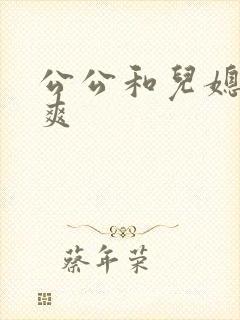 公公和兒媳
爽
蔡年荣